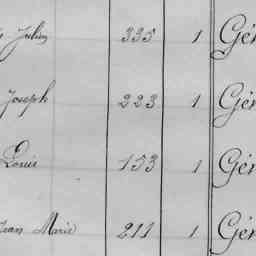 Julien 335 1 Gén
Joseph 223 1 Gén
Louis 153 1 Gén
Jean Marie 211 1 Gén